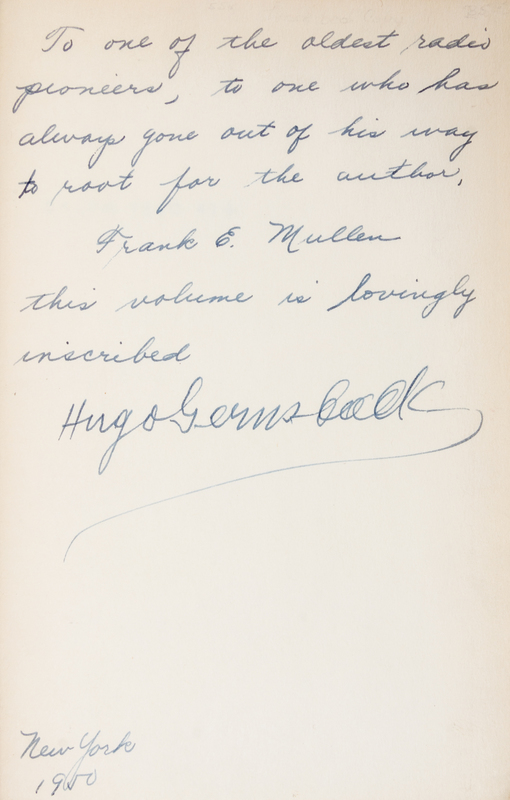 To one of the oldest radio
pioneers, to one who has
always gone out of his way
to root for the author,
Frank E. Mullen
this volume is lovingly
inscribed
Hugo Gernsback
New York
1950